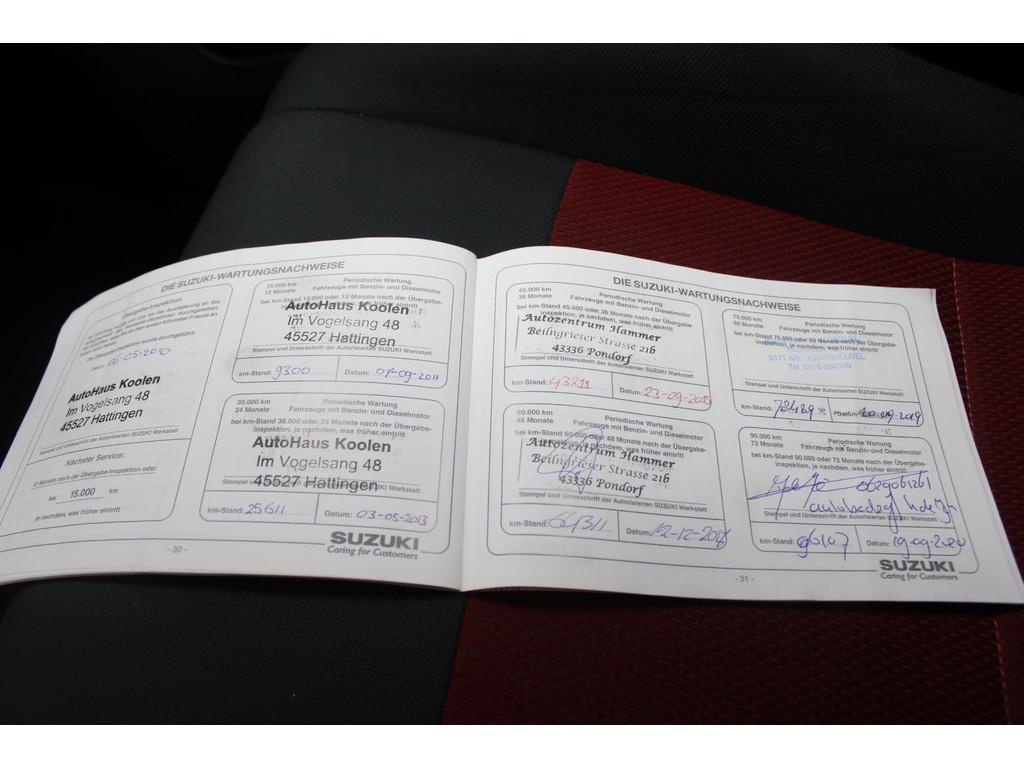 DIE SUZUKI-WARTUNGSNACHWEISE
Übergabe-Inspektion
06-05-2010
AutoHaus Koolen
Im Vogelsang 48
45527 Hattingen
Stempel und Unterschrift der Autorisierten SUZUKI Werkstatt
Nächster Service:
12 Monate nach der Übergabe-Inspektion oder
bei 15.000 km
je nachdem, was früher eintritt
15.000 km
12 Monate
Periodische Wartung
Fahrzeuge mit Benzin- und Dieselmotor
bei km-Stand 15.000 oder 12 Monate nach der Übergabe-
AutoHaus Koolen
Im Vogelsang 48
45527 Hattingen
Stempel und Unterschrift der Autorisierten SUZUKI Werkstatt
km-Stand: 9300 Datum: 07-09-2011
30.000 km
24 Monate
Periodische Wartung
Fahrzeuge mit Benzin- und Dieselmotor
bei km-Stand 30.000 oder 24 Monate nach der Übergabe-
inspektion, je nachdem, was früher eintritt
AutoHaus Koolen
Im Vogelsang 48
45527 Hattingen
km-Stand: 25611 Datum: 03-05-2013
- 30 -
SUZUKI
Caring for Customers
DIE SUZUKI-WARTUNGSNACHWEISE
45.000 km
36 Monate
Periodische Wartung
Fahrzeuge mit Benzin- und Dieselmotor
bei km-Stand 45.000 oder 36 Monate nach der Übergabe-
inspektion, je nachdem, was früher eintritt
Autozentrum Hammer
Beilngrieser Strasse 21b
43336 Pondorf
Stempel und Unterschrift der Autorisierten SUZUKI Werkstatt
km-Stand: 43211 Datum: 23-09-2015
60.000 km
48 Monate
Periodische Wartung
Fahrzeuge mit Benzin- und Dieselmotor
bei km-Stand 60.000 oder 48 Monate nach der Übergabe-
Autozentrum Hammer
Beilngrieser Strasse 21b
43336 Pondorf
km-Stand: 64311 Datum: 12-12-2017
75.000 km
60 Monate
Periodische Wartung
Fahrzeuge mit Benzin- und Dieselmotor
bei km-Stand 75.000 oder 60 Monate nach der Übergabe-
inspektion, je nachdem, was früher eintritt
Stempel und Unterschrift der Autorisierten SUZUKI Werkstatt
km-Stand:
90.000 km
72 Monate
Periodische Wartung
Fahrzeuge mit Benzin- und Dieselmotor
bei km-Stand 90.000 oder 72 Monate nach der Übergabe-
inspektion, je nachdem, was früher eintritt
Stempel und Unterschrift der Autorisierten SUZUKI Werkstatt
km-Stand: 96107 Datum: 19-09-2020
- 31 -
SUZUKI
Caring for Customers